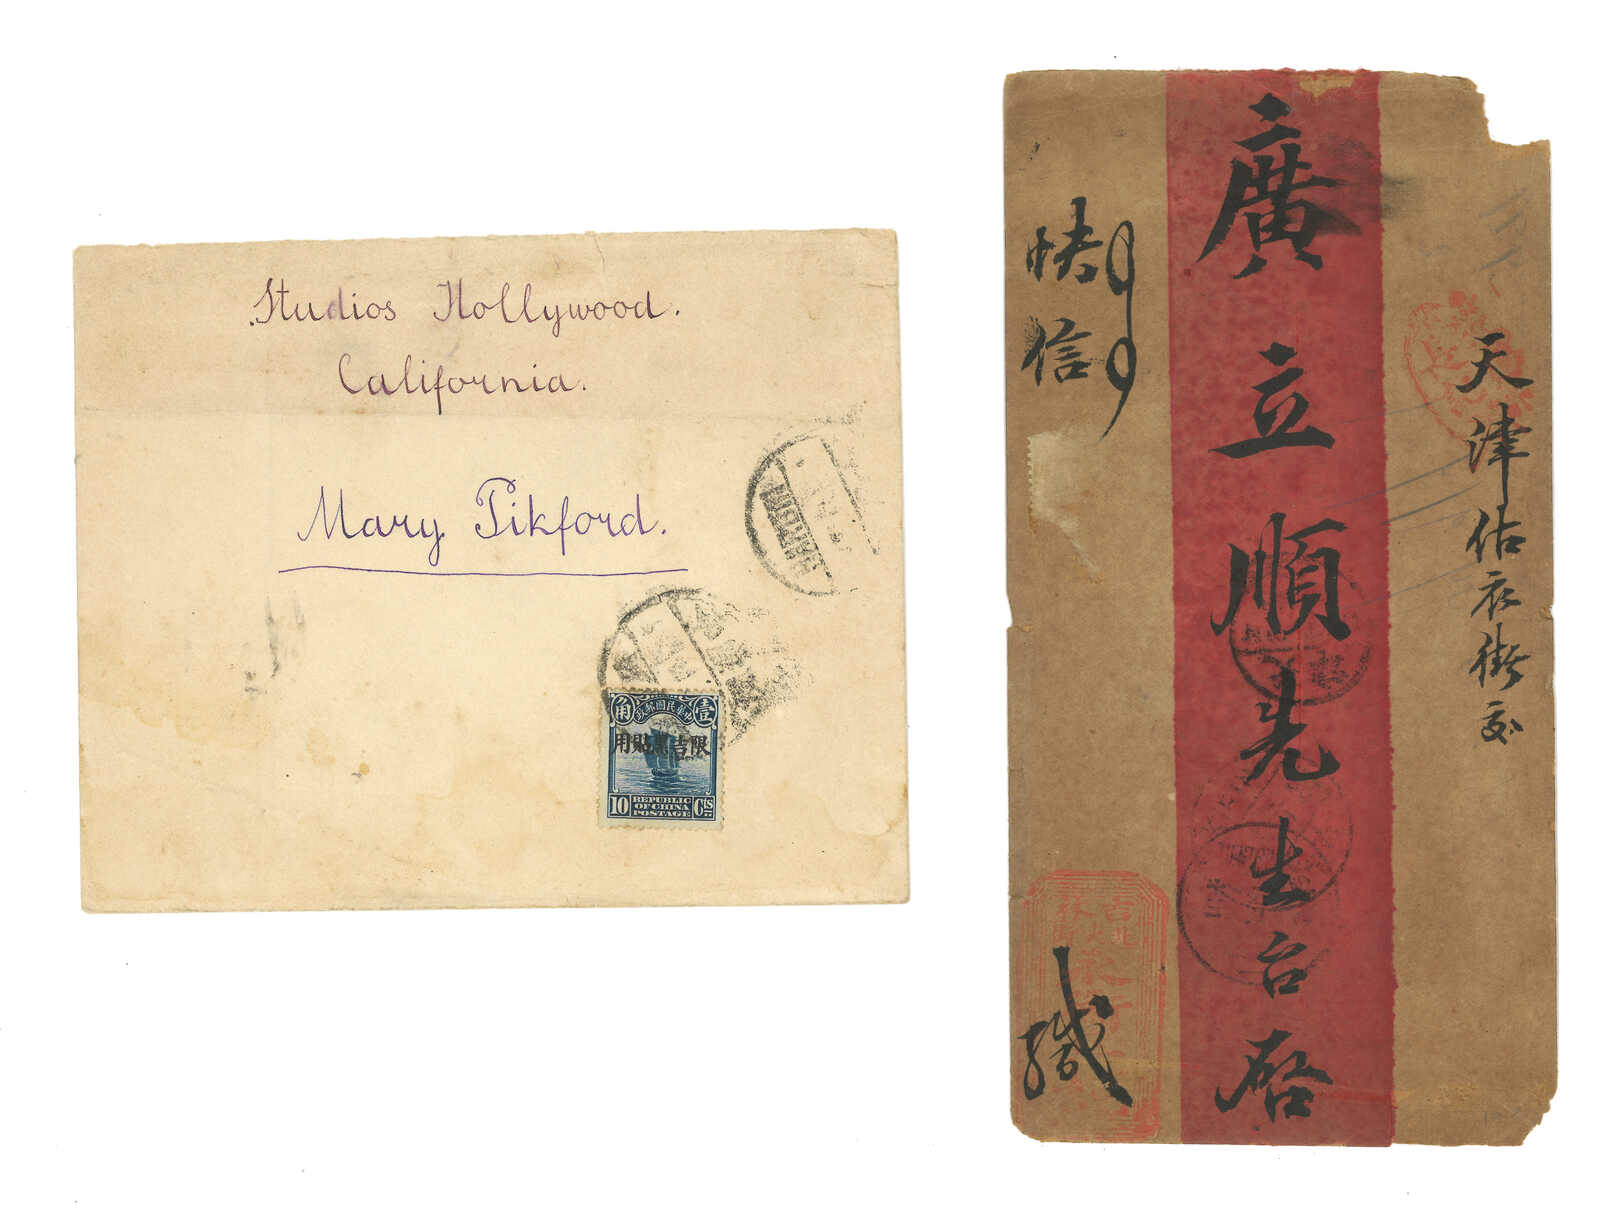 Studios Hollywood.
California.
Mary Pikford.
HARBIN
角 政郵國民華中 壹
用貼黑吉限
10 REPUBLIC OF CHINA POSTAGE Cts
天津估衣街交
廣立順先生台啓
快信
緘
吉林
北大